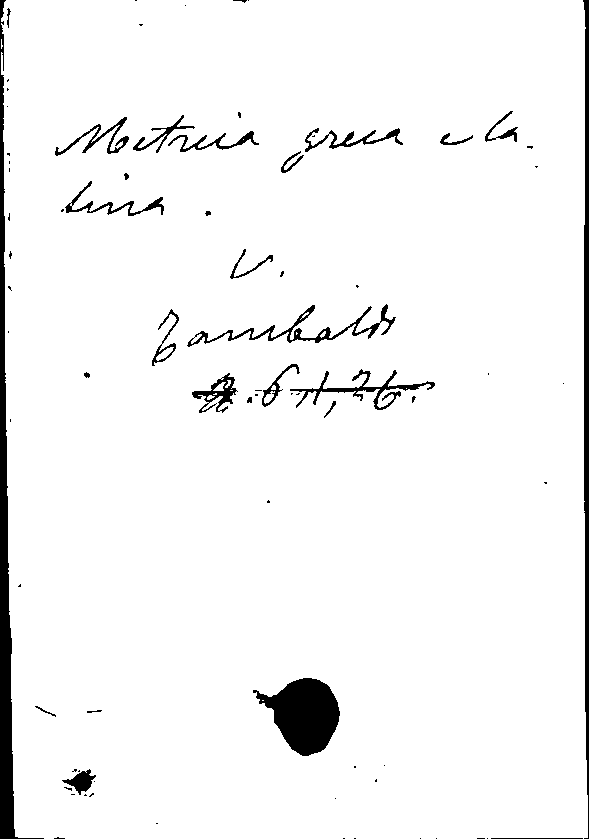 Metrica greca e la-
tina.
V.
Zambaldi
6.11,26.